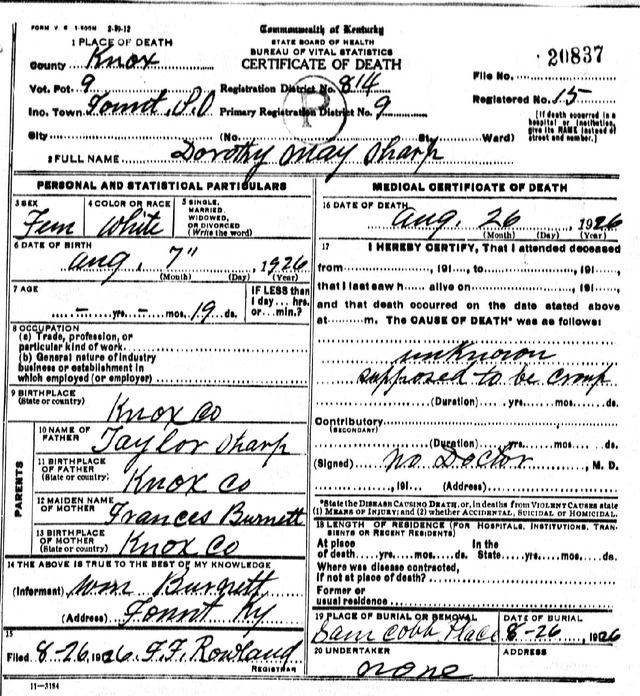 FORM V. S. 1-500M 2-29-12
Commonwealth of Kentucky
STATE BOARD OF HEALTH
BUREAU OF VITAL STATISTICS
CERTIFICATE OF DEATH
1 PLACE OF DEATH
County Knox
Vot. Pct 9
Inc. Town Fount, P.O
City
Registration District No. 814
Primary Registration District No. 9
P
File No. 20837
Registered No. 15
(No. St. Ward)
[If death occurred in a
hospital or institution,
give its NAME instead of
street and number.]
2 FULL NAME Dorothy May Sharp
PERSONAL AND STATISTICAL PARTICULARS
3 SEX
Fem
4 COLOR OR RACE
White
5 SINGLE,
MARRIED,
WIDOWED,
OR DIVORCED
(Write the word)
6 DATE OF BIRTH
Aug, 7" 1926
(Month) (Day) (Year)
7 AGE
- yrs. - mos. 19 ds.
IF LESS than
1 day... hrs.
or... min.?
8 OCCUPATION
(a) Trade, profession, or
particular kind of work
(b) General nature of industry
business or establishment in
which employed (or employer)
9 BIRTHPLACE
(State or country) Knox Co
PARENTS
10 NAME OF
FATHER Taylor Sharp
11 BIRTHPLACE
OF FATHER
(State or country) Knox Co
12 MAIDEN NAME
OF MOTHER Frances Burnett
13 BIRTHPLACE
OF MOTHER
(State or country) Knox Co
14 THE ABOVE IS TRUE TO THE BEST OF MY KNOWLEDGE
(Informant) Wm Burnett
(Address) Fount Ky
15
Filed 8-26, 1926 F.F. Rowland
REGISTRAR
11-3184
MEDICAL CERTIFICATE OF DEATH
16 DATE OF DEATH
Aug, 26, 1926
(Month) (Day) (Year)
17 I HEREBY CERTIFY, That I attended deceased
from, 191, to, 191,
that I last saw h alive on, 191,
and that death occurred on the date stated above
at m. The CAUSE OF DEATH* was as follows:
unknown
supposed to be croup
(Duration) yrs. mos. ds.
Contributory
(SECONDARY)
(Duration) yrs. mos. ds.
(Signed) No Doctor, M. D.
, 191 (Address)
*State the DISEASE CAUSING DEATH, or, in deaths from VIOLENT CAUSES state
(1) MEANS OF INJURY; and (2) whether ACCIDENTAL, SUICIDAL or HOMICIDAL.
18 LENGTH OF RESIDENCE (FOR HOSPITALS, INSTITUTIONS, TRAN-
SIENTS OR RECENT RESIDENTS)
At place In the
of death yrs. mos. ds. State yrs. mos. ds.
Where was disease contracted,
if not at place of death?
Former or
usual residence
19 PLACE OF BURIAL OR REMOVAL
Sam Cobb Place
DATE OF BURIAL
8-26, 1926
20 UNDERTAKER
none
ADDRESS